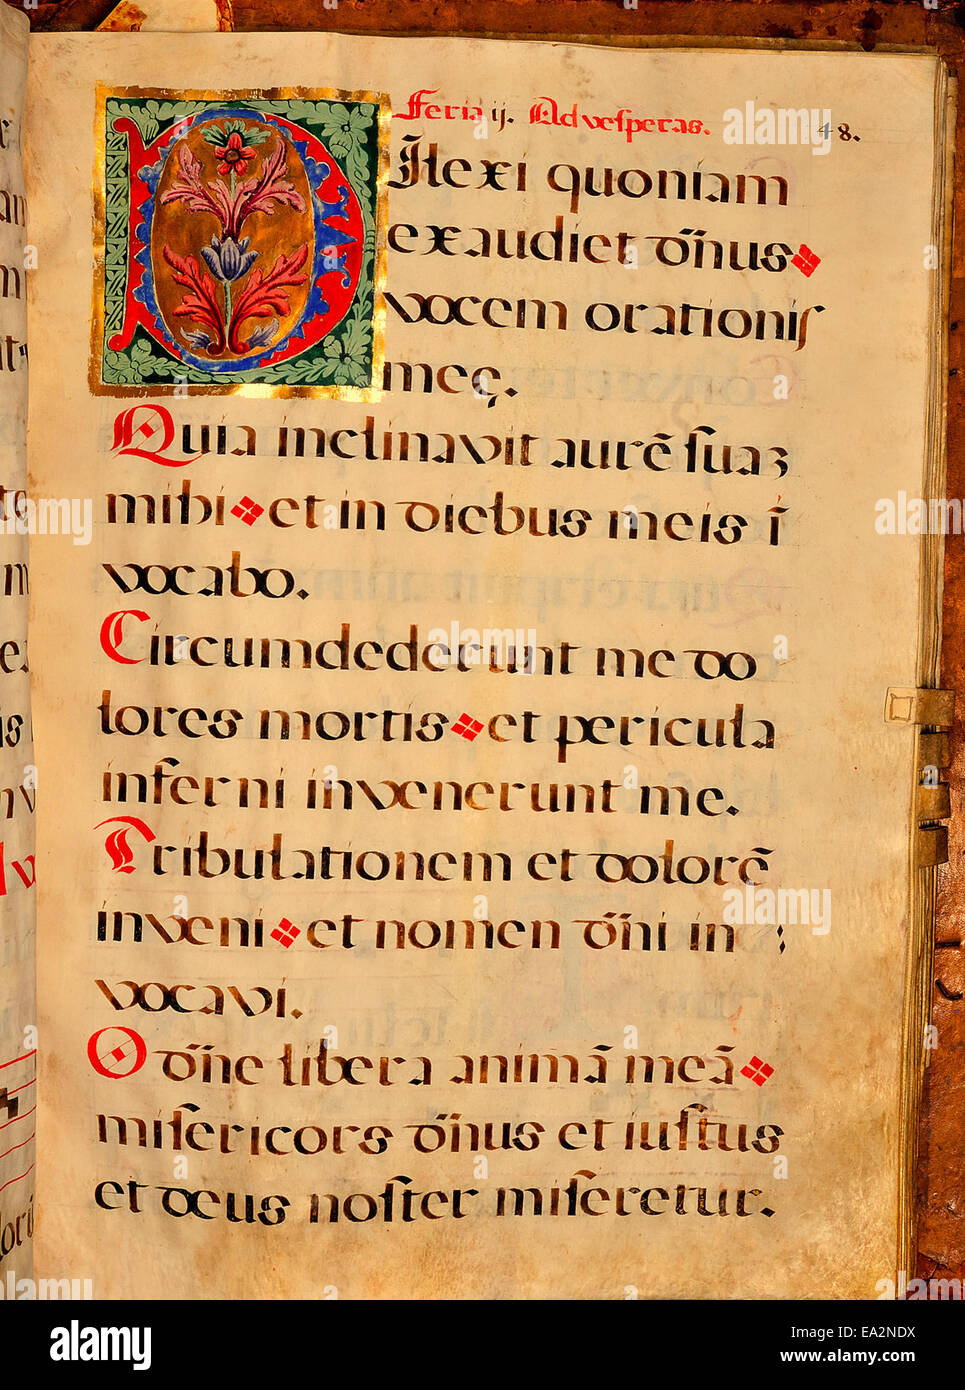 Feria ij. Ad vesperas. 48.
DIlexi quoniam
exaudiet dn̄us
vocem orationis
meę.
Quia inclinavit aurē suaꝫ
mihi et in diebus meis ī
vocabo.
Circumdederunt me do
lores mortis et pericula
inferni invenerunt me.
Tribulationem et dolorē
inveni et nomen dn̄i in :
vocavi.
O dn̄e libera animā meā
misericors dn̄us et iustus
et deus noster miseretur.
alamy
a
alamy stock photo
EA2NDX
www.alamy.com